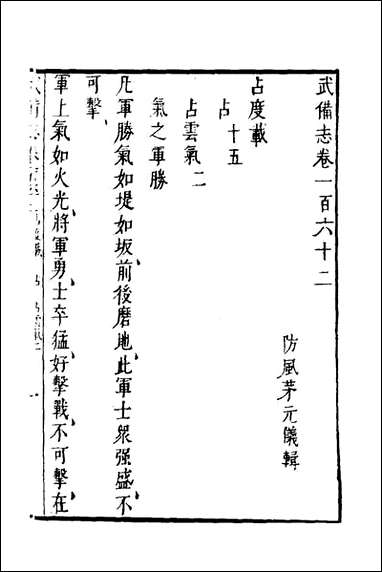 武備志卷一百六十二
防風茅元儀輯
占度載
占十五
占雲氣二
氣之軍勝
凡軍勝氣如堤如坂前後磨地此軍士衆强盛不
可擊
軍上氣如火光將軍勇士卒猛好擊戰不可擊在